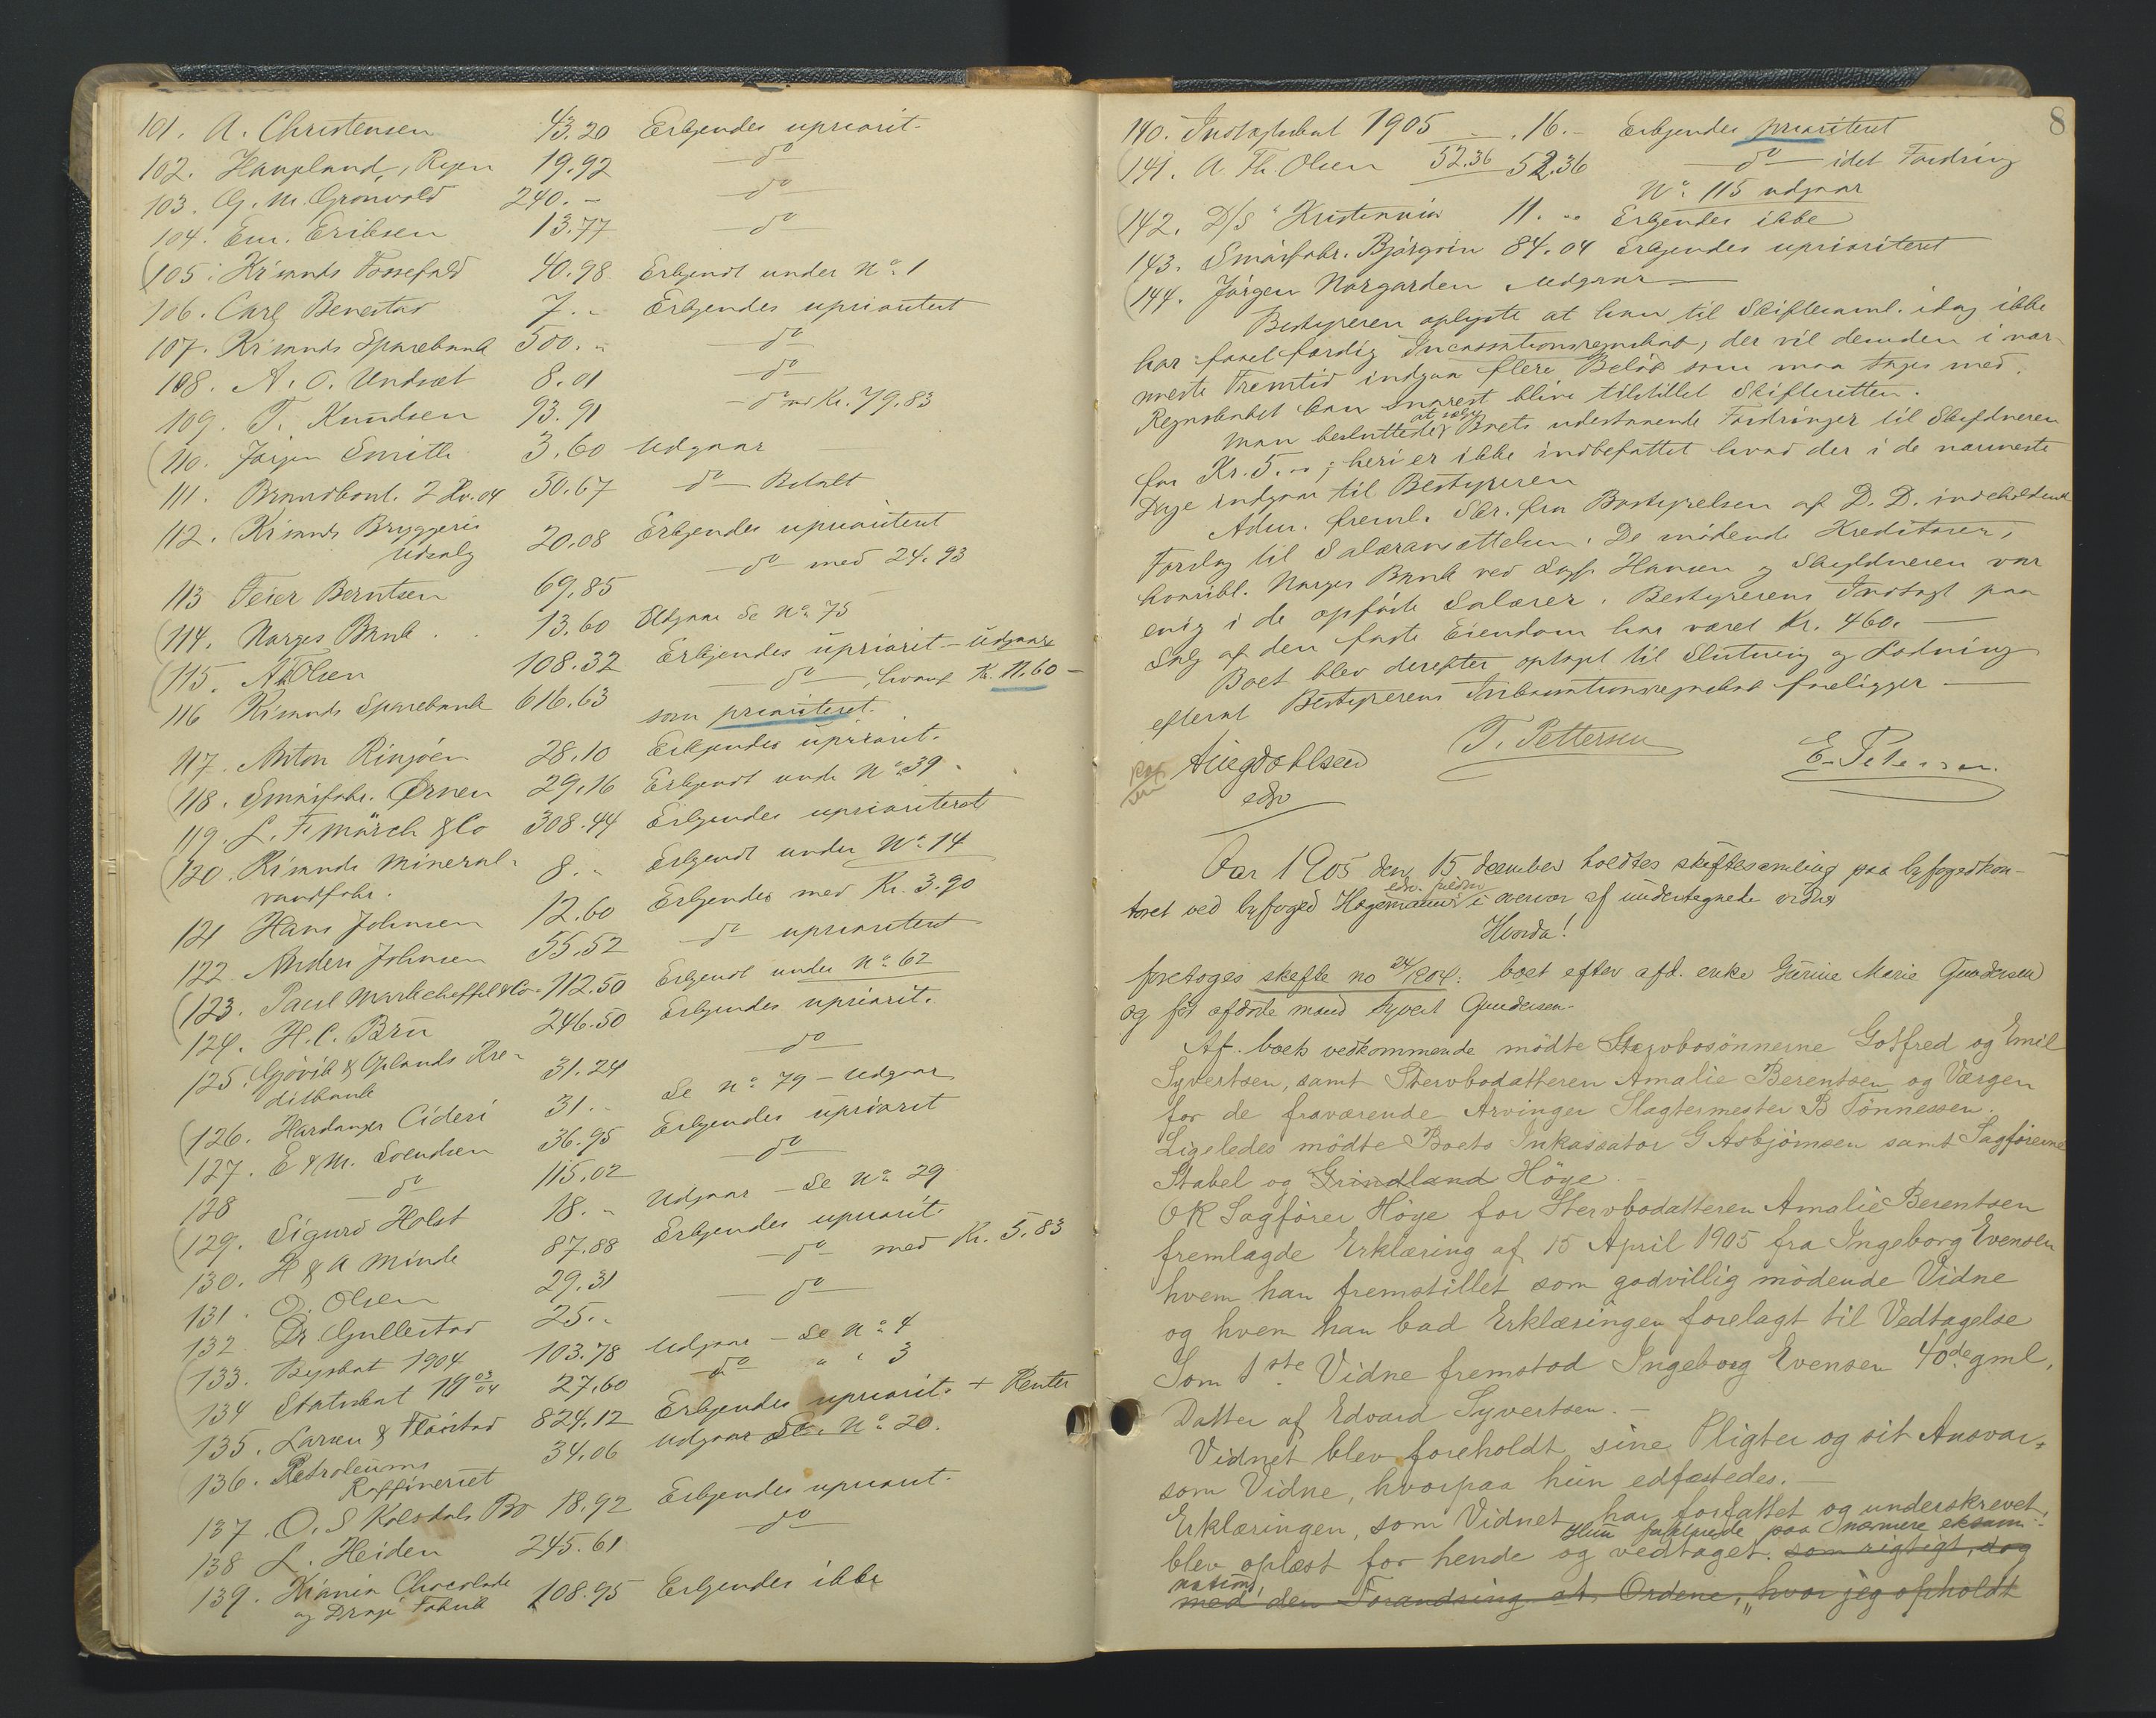 101. A. Christensen 43.20 Erkjendes upriorit.
102. Haugland, Ryen 19.92 — do —
103. G. M. Grönvold 240. – — do —
104. Em. Eriksen 13.77 — do —
(105. Kr'sands Fossefald 40.98 Erkjendt under No 1
106. Carl Benestad 7. „ Erkjendes uprioritert
107. Kr'sands Sparebank 500. „ — do —
108. A. O. Undset 8.01 — do —
109. T. Knudsen 93.91 — do — med Kr. 79.83
(110. Jörgen Smith 3.60 Udgaar
111. Brandkont. 2 Kv. 04 50.67 — do — Betalt
112. Kr'sands Bryggeris
Udsalg 20.08 Erkjendes uprioritert
113 Peier Berntsen 69.85 — do — med 24.93
(114. Norges Bank 13.60 Udgaar Se No 75
(115. A Th Olsen 108.32 Erkjendes upriorit – udgaar
116 Kr'sands Sparebank 616.63 — do —, hvoraf Kr. 11.60 –
som prioriteret.
117. Anton Rinjöen 28.10 Erkjendes upriorit.
(118. Smörfabr. Ørnen 29.16 Erkjendt under No 39
119. L. F. Mörch & Co 308.44 Erkjendes uprioriteret
(120. Kr'sands Mineral-
vandfabr. 8. „ Erkjendt under No 14
121 Hans Johnsen 12.60 Erkjendes med Kr. 3.90
122 Anders Johnsen 55.52 — do — uprioritert
(123. Paul Markcheffel & Co. 112.50 Erkjendt under No 62
124. H. C. Brü 246.50 Erkjendes upriorit.
125. Gjövik & Oplands Kre-
ditbank 31.24 — do —
(126. Hardanger Cideri 31. „ Se No 79 – Udgaar
127. E & M. Svendsen 36.95 Erkjendes upriorit
128 — do — 115.02 — do —
(129. Sigurd Holst 18. „ Udgaar – Se No 29
130. H & A Minde 87.88 Erkjendes upriorit.
131. O. Olsen 29.31 — do — med Kr. 5.83
132 Dr Gullestad 25. „ — do —
(133. Byskat 1904 103.78 Udgaar – Se No 4
134 Statsskat 1903/04 27.60 — do — „ „ 3
135. Larsen & Flöistad 824.12 Erkjendes upriorit. + Renter
(136. Petroleums
Raffineriet 34.06 Udgaar Se No 20.
137. O. S Kolsdals Bo 18.92 Erkjendes upriorit.
138 L. Heiden 245.61 — do —
139. Kr'ania Chocolade
og Drops Fabrik 108.95 Erkjendes ikke
8
140. Indtægtskat 1905 16. – Erkjendes prioritert
(141. A. Th. Olsen 52.36 52.36 — do — idet Fordring
No 115 udgaar
(142. D/S "Kristiania 11. „ Erkjendes ikke
143. Smörfabr. Björgvin 84.04 Erkjendes uprioriteret
(144. Jörgen Norgarden Udgaar —
Bestyreren oplyste at han til Skiftesaml. idag ikke
har faaet færdig Incassationsregnskab, der vil desuden i nær-
meste Fremtid indgaa flere Beløb som maa tages med.
Regnskabet kan snarest blive tilstillet Skifteretten.
Man besluttede at sælge Boets udestaaende Fordringer til Skyldneren
for Kr. 5. –; heri er ikke indbefattet hvad der i de nærmeste
Dage indgaar til Bestyreren
Adm. freml. Skr. fra Bostyrelsen af D. D. indeholdende
Forslag til Salæransættelsen. De mödende Kreditorer,
hvoribl. Norges Bank ved Sagf. Hansen og Skyldneren var
enig i de opförte Salærer. Bestyrerens Indtægt paa
Salg af den faste Eiendom har været Kr. 460. —
Boet blev derefter optaget til Slutning og Lodning
efterat Bestyrerens Inkassationsregnskab foreligger —
T. Pettersen
E. Petersen.
edv
Aar 1905 den 15 december holdtes skiftesamling paa byfogedkon-
toret ved byfoged Hagemanns edv. fuldm. i overvær af undertegnede vidner
Hvorda!
foretoges skifte no 24/1904: boet efter afd. enke Gurine Marie Gundersen
og før afdøde mand Syvert Gundersen.
Af boets vedkommende mödte Stervbosönnerne Gotfred og Emil
Syvertsen, samt Stervbodatteren Amalie Berentsen og Værgen
for de fraværende Arvinger Slagtermester B Tönnessen.
Ligeledes mödte Boets Inkassator G Asbjörnsen samt Sagförerne
Stabel og Grindland Höye.
OR Sagförer Höye for Stervbodatteren Amalie Berentsen
fremlagde Erklæring af 15 April 1905 fra Ingeborg Evensen
hvem han fremstillet som godvillig mödende Vidne
og hvem han bad Erklæringen forelagt til Vedtagelse
Som 1ste Vidne fremstod Ingeborg Evensen 40de gml,
Datter af Edvard Syvertsen. –
Vidnet blev foreholdt sine Pligter og sit Ansvar
som Vidne, hvorpaa hun edfæstedes. —
Erklæringen, som Vidnet har forfattet og underskrevet,
blev oplæst for hende og vedtaget. som rigtigt, dog
Hun forklarede paa nærmere eksami-
nation:
med den Forandring at Ordene, „hvor jeg opholdt